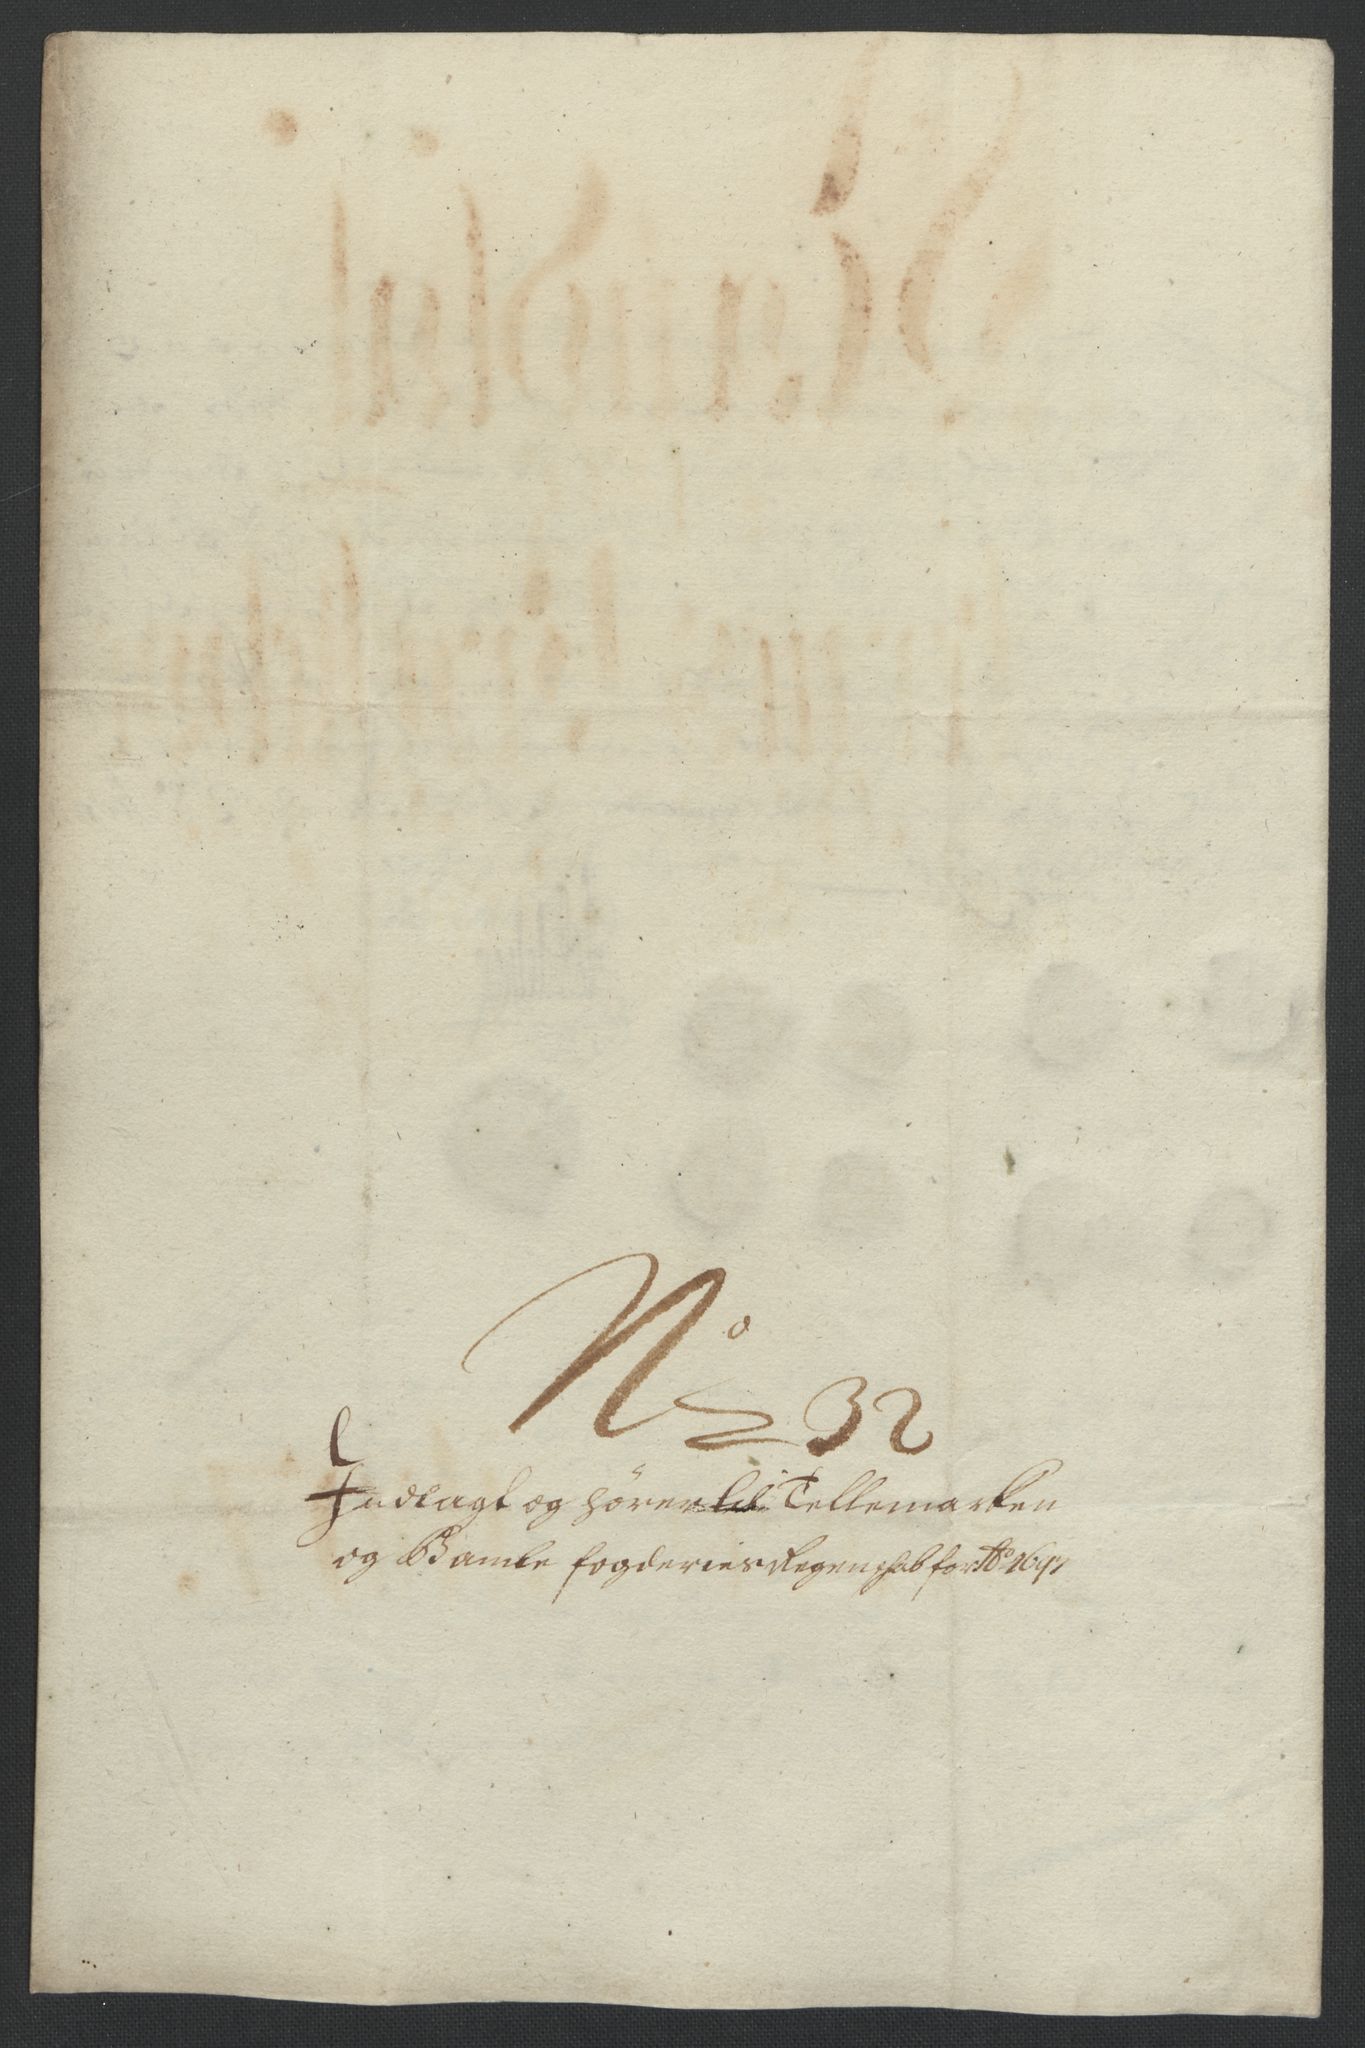 No 32
Indlagt og hører til Tellemarken
og Bamble fogderies Regenschab for Ao 1697